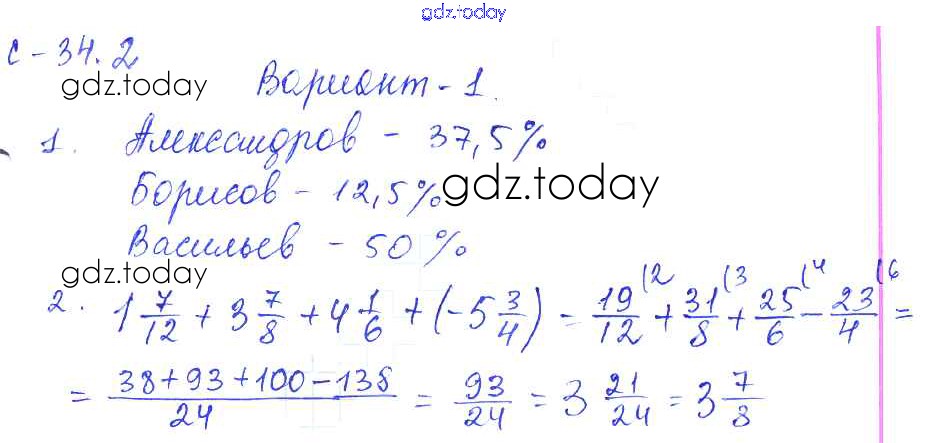 gdz.today
С - 34.2
gdz.today
Вариант - 1.
1. Александров - 37,5%
Борисов - 12,5%
gdz.today
Васильев - 50%
gdz.today
2. 1 7/12 + 3 7/8 + 4 1/6 + (-5 3/4) = 19/12 (2 + 31/8 (3 + 25/6 (4 - 23/4 (6 =
= 38+93+100-138/24 = 93/24 = 3 21/24 = 3 7/8